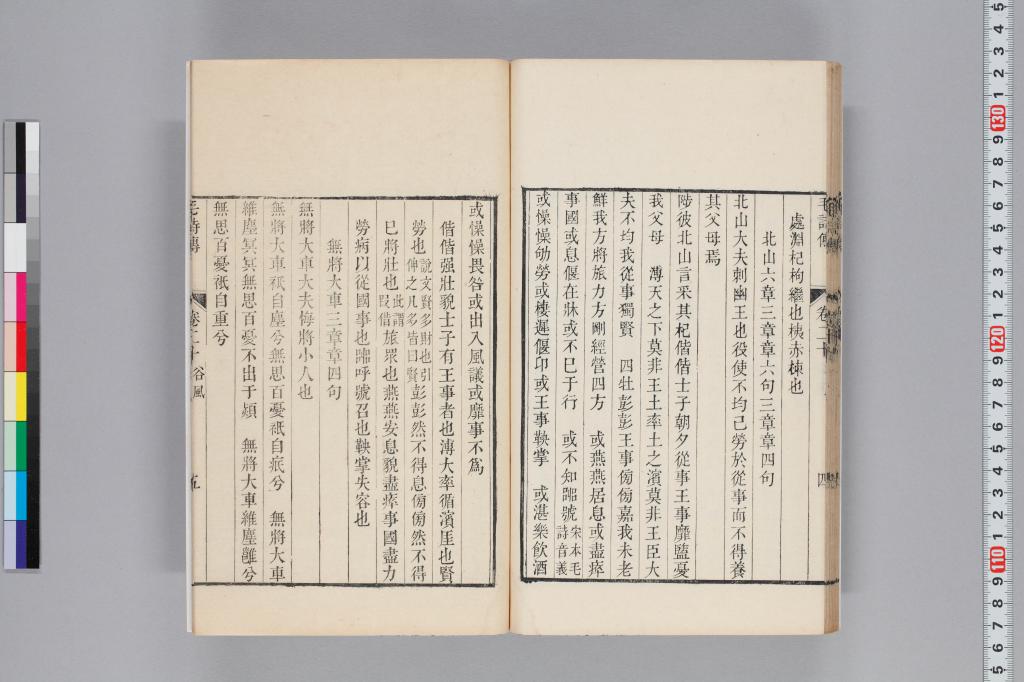 處淵杞枸繼也桋赤棟也
北山六章三章章六句三章章四句
北山大夫刺幽王也役使不均己勞於從事而不得養
其父母焉
陟彼北山言采其杞偕偕士子朝夕從事王事靡盬憂
我父母　溥天之下莫非王土率土之濱莫非王臣大
夫不均我從事獨賢　四牡彭彭王事傍傍嘉我未老
鮮我方將旅力方剛經營四方　或燕燕居息或盡瘁
事國或息偃在牀或不巳于行　或不知嘂號宋本毛詩音義
或慘慘劬勞或棲遲偃卬或王事鞅掌　或湛樂飲酒
毛詩傳
卷二十
四
或慘慘畏咎或出入風議或靡事不爲
偕偕强壯貌士子有王事者也溥大率循濱厓也賢
勞也說文賢多財也引伸之凡多皆曰賢彭彭然不得息傍傍然不得
巳將壯也此謂叚借旅眾也燕燕安息貌盡瘁事國盡力
勞病以從國事也嘂呼號召也鞅掌失容也
無將大車三章章四句
無將大車大夫悔將小人也
無將大車祇自塵兮無思百憂祇自疧兮　無將大車
維塵冥冥無思百憂不出于熲　無將大車維塵雝兮
無思百憂祇自重兮
毛詩傳
卷二十 谷風
五